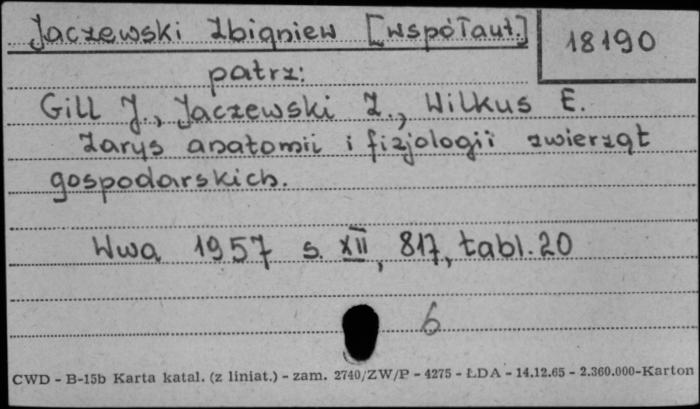 Jaczewski Zbigniew [współaut.]
18190
patrz:
Gill J., Jaczewski Z., Wilkus E.
Zarys anatomii i fizjologii zwierząt
gospodarskich.
Wwa 1957 s. XII, 817, tabl. 20
6
CWD - B-15b Karta katal. (z liniat.) - zam. 2740/ZW/P - 4275 - ŁDA - 14.12.65 - 2.360.000-Karton